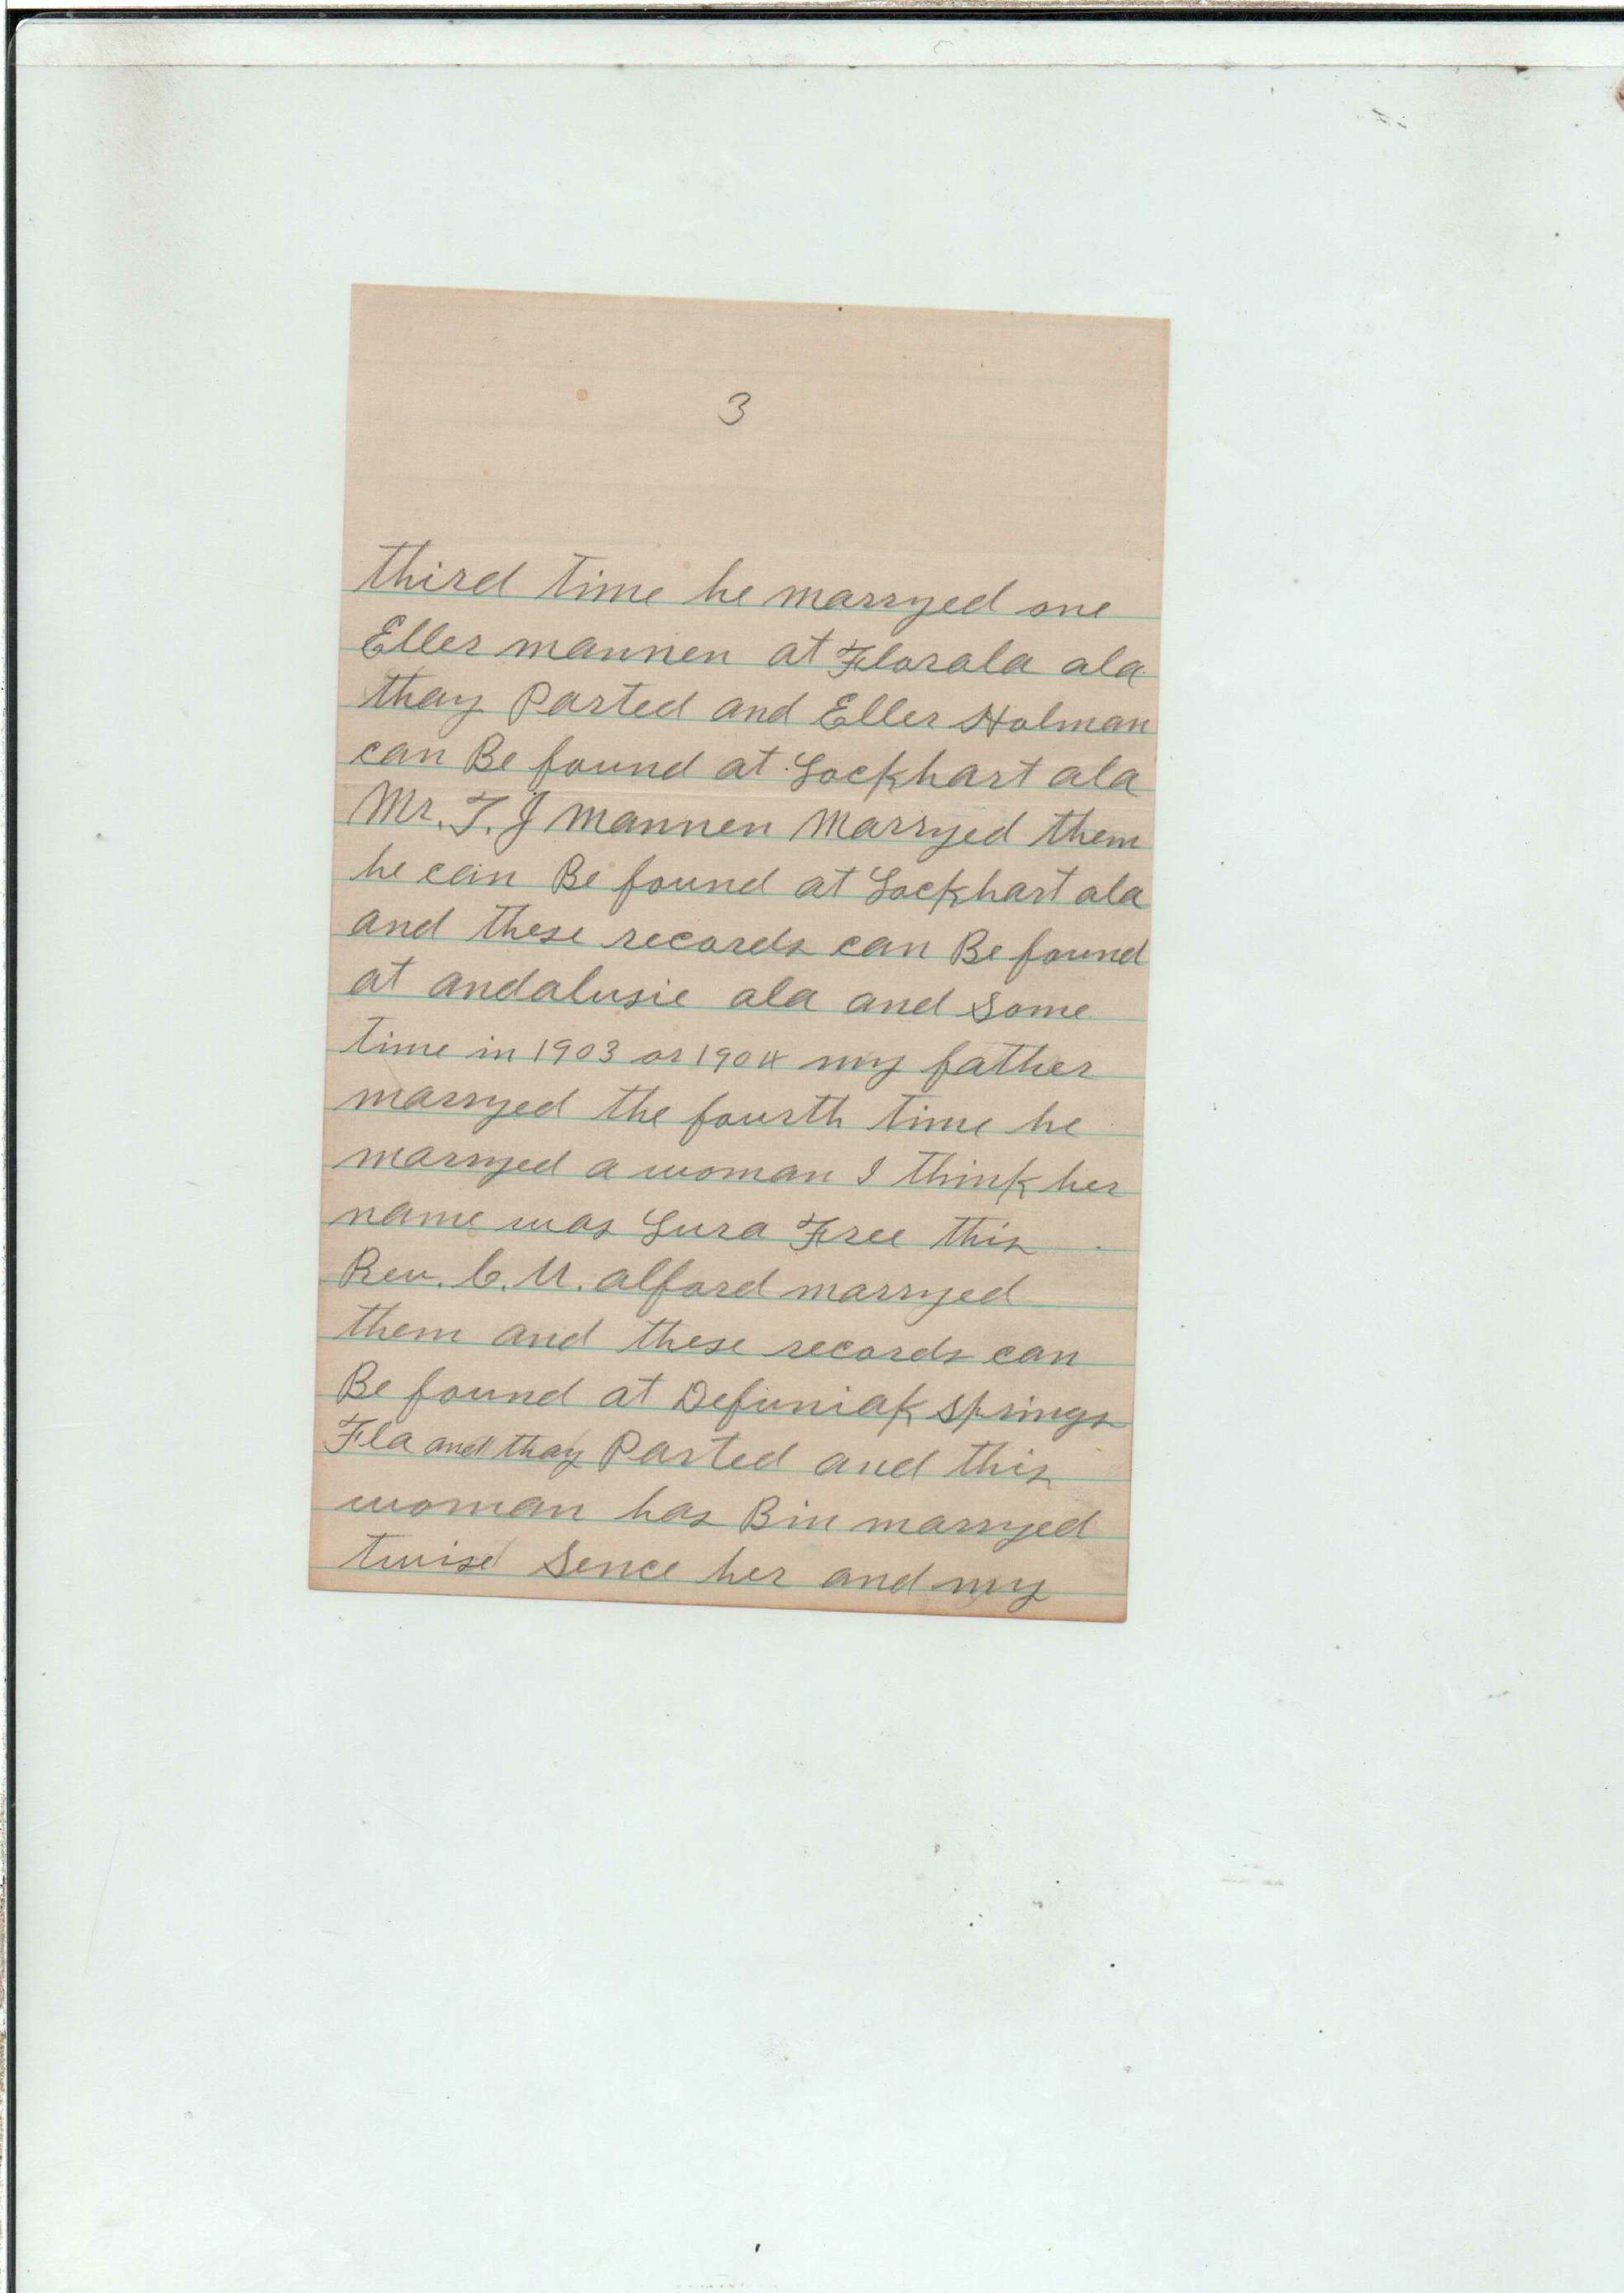 3
third time he marryed one
Eller mannen at Florala ala
thay Parted and Eller Holman
can Be found at Lockhart ala
Mr. T. J mannen Marryed them
he can Be found at Lockhart ala
and these records can Be found
at andalusie ala and Some
time in 1903 or 1904 my father
marryed the fourth time he
marryed a woman I think her
name was Lura Free this
Rev. C. M. alford marryed
them and these records can
Be found at Defuniak springs
Fla and thay Parted and this
woman has Bin marryed
twise Sence her and my